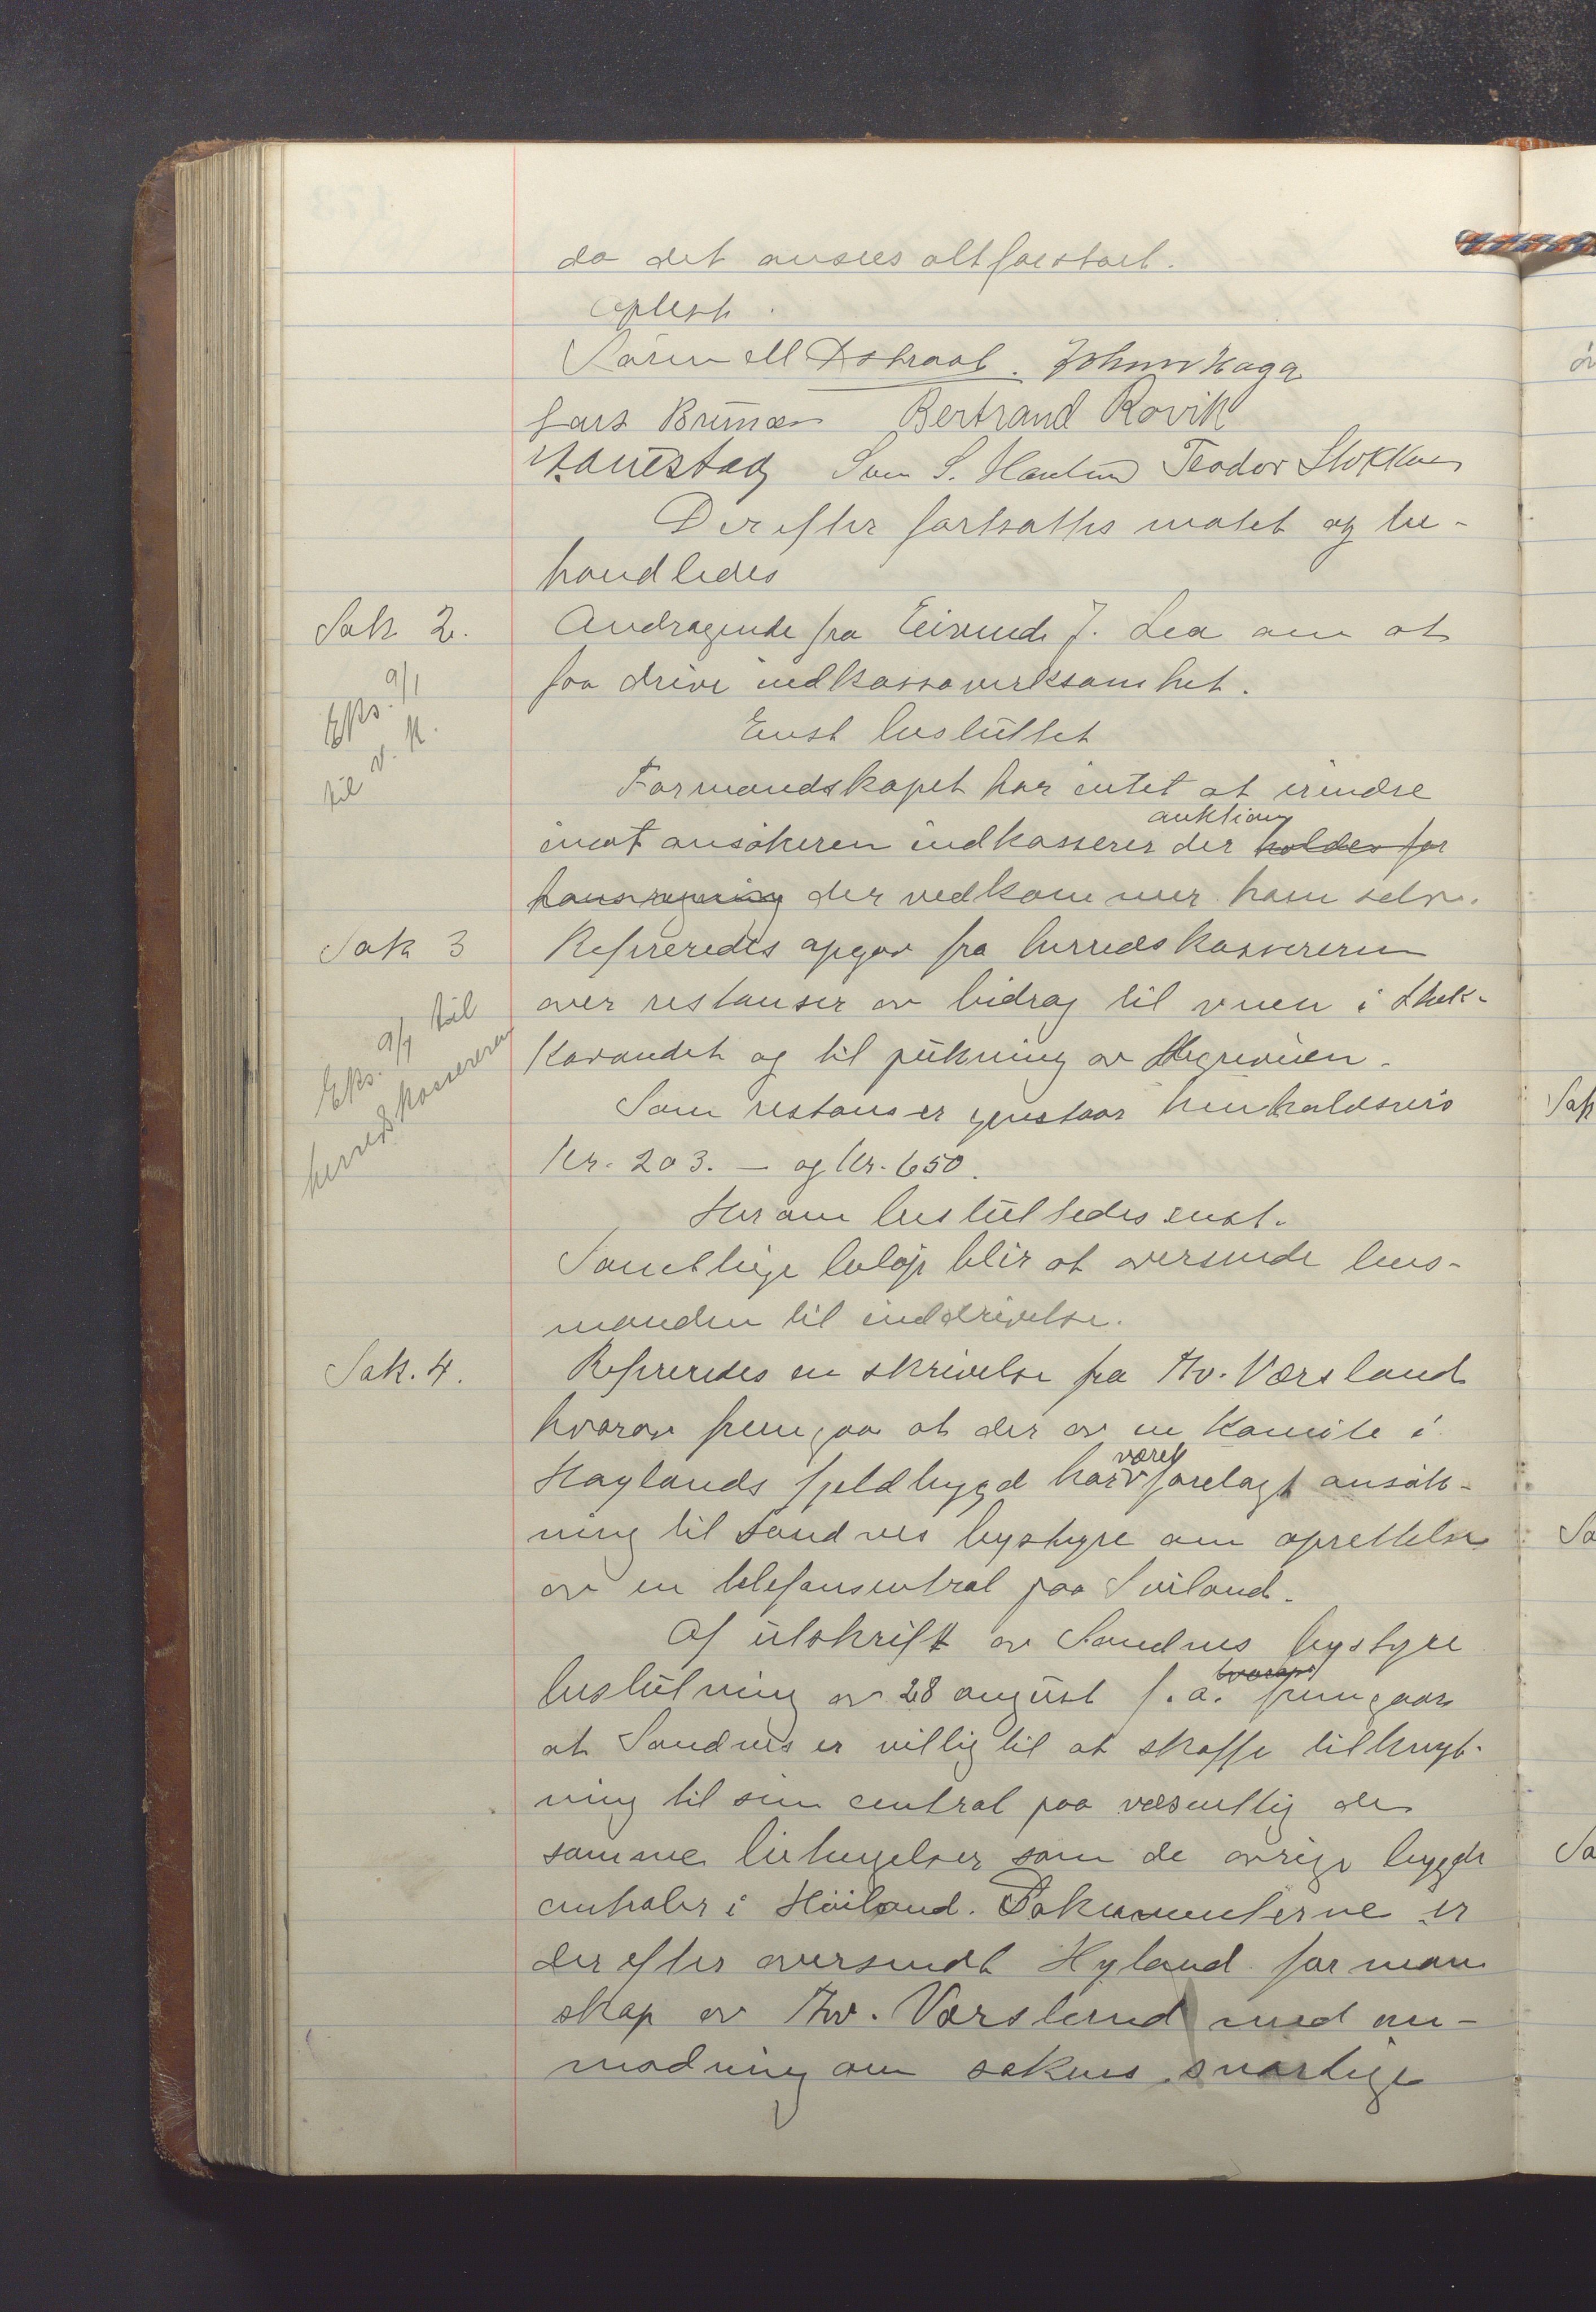 da det ansees altforstort.
Oplest.
Sören M Østraat. John Haga
Lars Brunæs Bertrand Rovik
Hanestad Sven S. Hantun Teodor Stokka
Derefter fortsattes motet og be-
handledes
Sak 2. Andragende fra Eivind J. Lea om at
Eks. 9/1 faa drive indkassovirksomhet.
til v. k. Enst besluttet
Formandskapet har intet at erindre
auktion
imot ansökeren indkasserer der holdes for
hans regning der vedkommer ham selv.
Sak 3 Refereredes opgav fra herredskassereren
over restanser av bidrag til veien i Stok-
Eks. 9/1 til kavandet og til pukning av Hegreveien.
herredskassereren Som restanser gjenstaar henholdsvis
Kr. 203. – og Kr. 650.
Herom besluttedes enst.
Samtlige belöp blir at oversende lens-
manden til inddrivelse.
Sak. 4. Refereredes en skrivelse fra Av. Værsland
hvorav fremgaa at der av en Komite i
været
Høylands fjeldbygd har forelagt ansök-
ning til Sandnes bystyre om oprettelse
av en telefoncentral paa Sviland.
Af utskrift av Sandnes bystyre
hvorav
beslutning av 28 august f. a. fremgaar
at Sandnes er villig til at skaffe tilknyt-
ning til sin central paa væsentlig de
samme betingelser som de øvrige bygde
centraler i Höiland. Dokumenterne er
derefter oversendt Hyland forman
skap av Av. Værsland med an-
modning om sakens snarlige